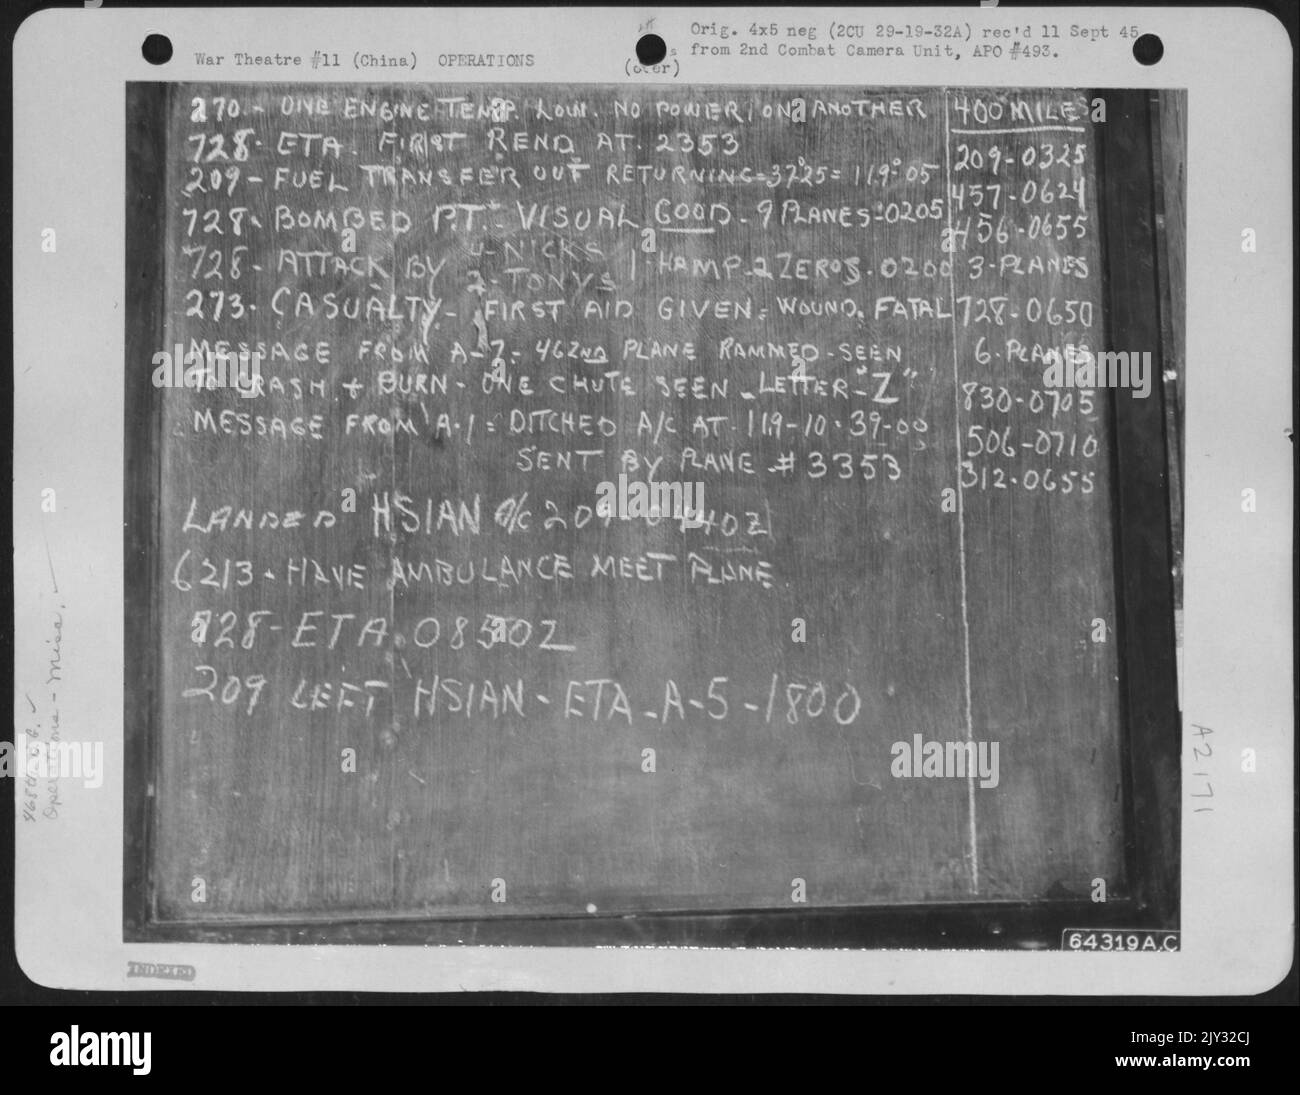 Orig. 4x5 neg (2CU 29-19-32A) rec'd 11 Sept 45
from 2nd Combat Camera Unit, APO #493.
War Theatre #11 (China) OPERATIONS
(over)
270 - ONE ENGINE TEMP. LOW. NO POWER ON ANOTHER
728 - ETA. FIRST REND AT. 2353
209 - FUEL TRANSFER OUT RETURNING = 37°25 = 119°-05
728 - BOMBED P.T. - VISUAL GOOD - 9 PLANES - 0205
728 - ATTACK BY 4-NICKS 1 HAMP - 2 ZEROS - 0200
2-TONYS
273 - CASUALTY - FIRST AID GIVEN = WOUND. FATAL
MESSAGE FROM A-7 - 462ND PLANE RAMMED - SEEN
TO CRASH + BURN - ONE CHUTE SEEN - LETTER - "Z"
MESSAGE FROM A-1 = DITCHED A/C AT - 119-10 - 39-00
SENT BY PLANE - # 3353
LANDED HSIAN A/C 209-0440Z
6213 - HAVE AMBULANCE MEET PLANE
728 - ETA 0850Z
209 LEFT HSIAN - ETA - A-5 - 1800
400 MILES
209-0325
457-0624
456-0655
3-PLANES
728-0650
6-PLANES
830-0705
506-0710
312-0655
64319A.C.
INDEXED
Operations - Misc.
A2171
alamy
alamy
Image ID: 2JY32CJ
www.alamy.com